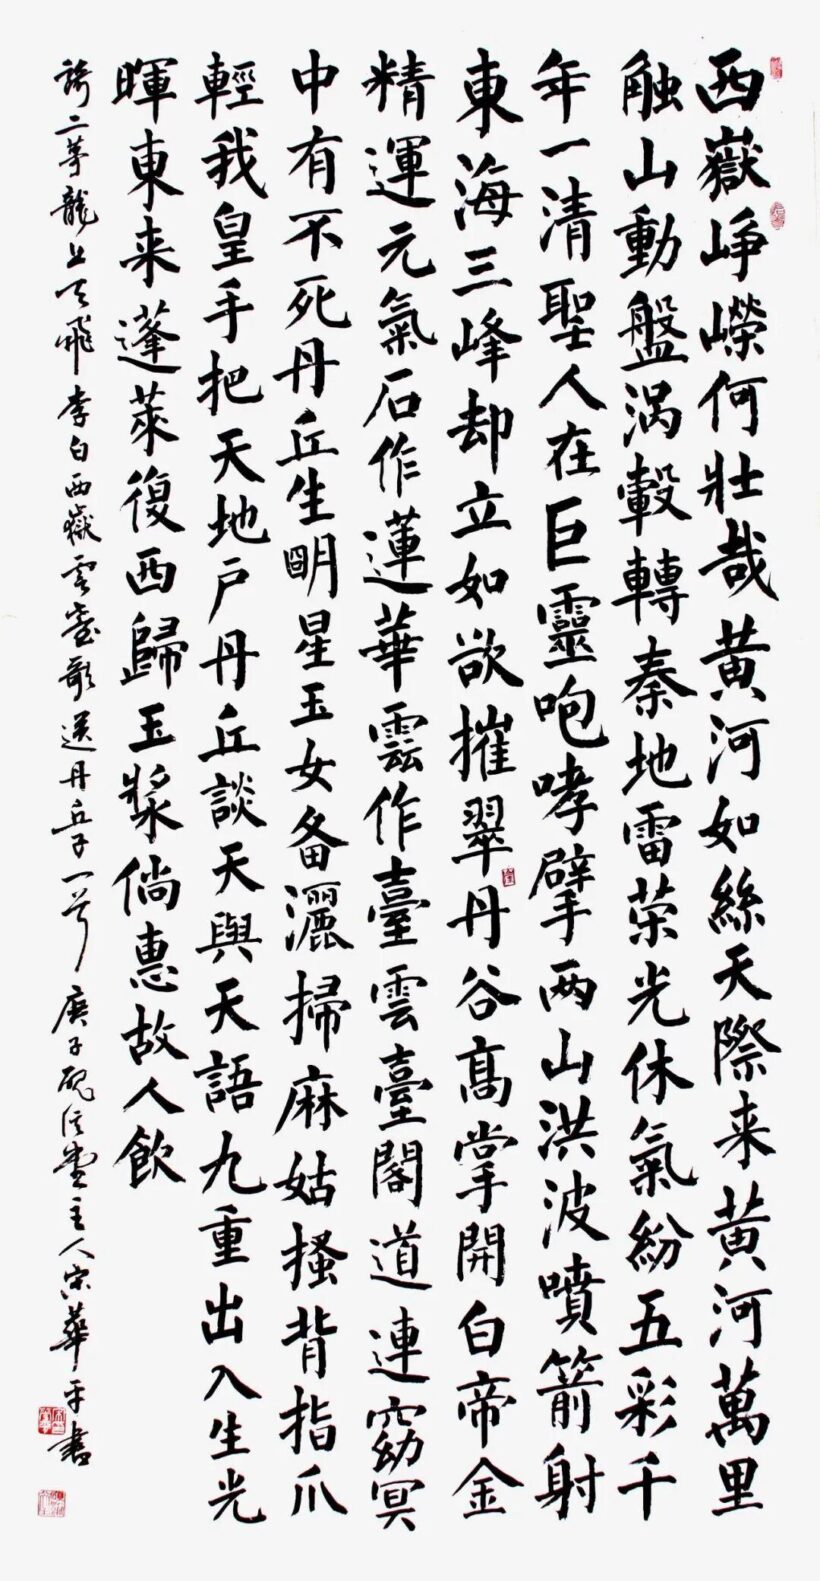 西嶽崢嶸何壯哉黄河如絲天際来黄河萬里
触山動盤渦轂轉秦地雷荣光休氣紛五彩千
年一清聖人在巨靈咆哮擘两山洪波噴箭射
東海三峰却立如欲摧翠丹谷高掌開白帝金
精運元氣石作蓮華雲作臺雲臺閣道連窈冥
中有不死丹丘生明星玉女备灑掃麻姑搔背指爪
輕我皇手把天地户丹丘談天與天語九重出入生光
暉東来蓬萊復西歸玉漿倘惠故人飲
騎二茅龍上天飛 李白西嶽雲臺歌送丹丘子一首 庚子堂主人宋華平書